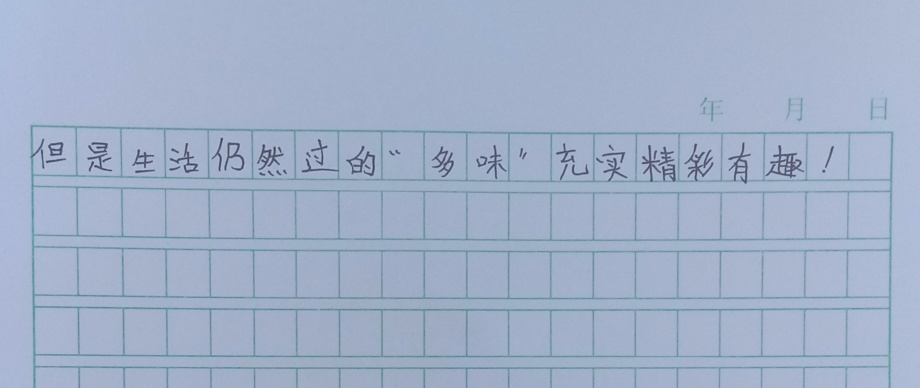 年 月 日
但是生活仍然过的“多味”充实精彩有趣！